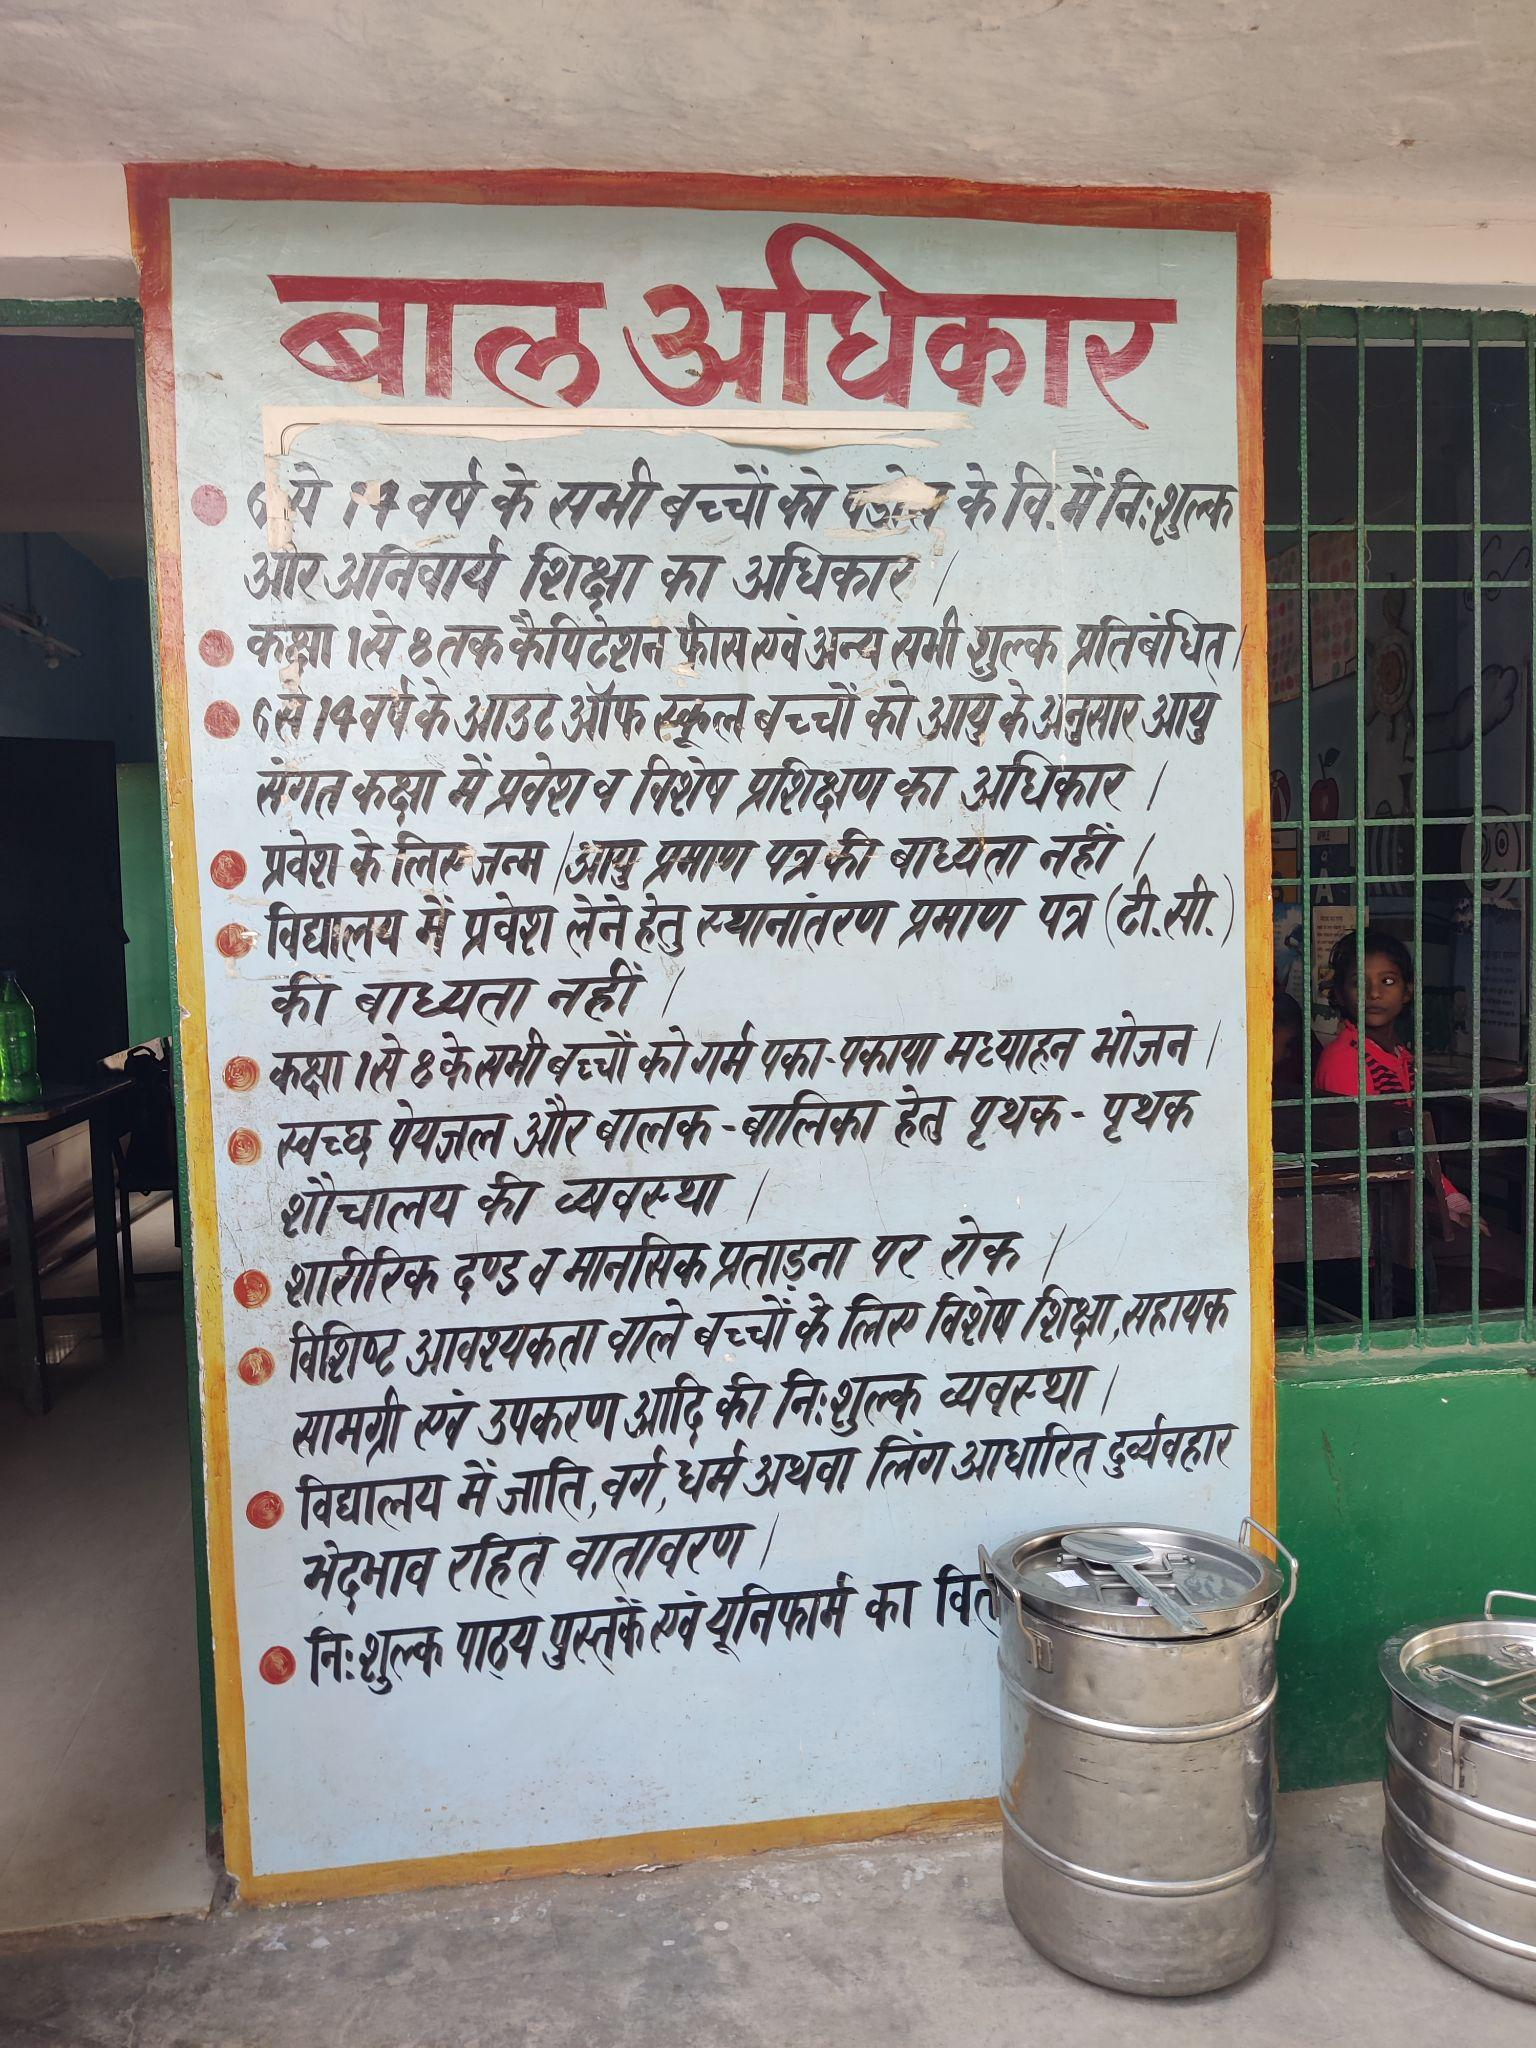 बाल अधिकार
6 से 14 वर्ष के सभी बच्चों को पड़ोस के वि. में नि:शुल्क
और अनिवार्य शिक्षा का अधिकार।
कक्षा 1 से 8 तक कैपिटेशन फीस एवं अन्य सभी शुल्क प्रतिबंधित।
6 से 14 वर्ष के आउट ऑफ स्कूल बच्चों को आयु के अनुसार आयु
संगत कक्षा में प्रवेश व विशेष प्रशिक्षण का अधिकार।
प्रवेश के लिए जन्म/आयु प्रमाण पत्र की बाध्यता नहीं।
विद्यालय में प्रवेश लेने हेतु स्थानांतरण प्रमाण पत्र (टी.सी.)
की बाध्यता नहीं।
कक्षा 1 से 8 के सभी बच्चों को गर्म पका-पकाया मध्याहन भोजन।
स्वच्छ पेयजल और बालक-बालिका हेतु पृथक-पृथक
शौचालय की व्यवस्था।
शारीरिक दण्ड व मानसिक प्रताड़ना पर रोक।
विशिष्ट आवश्यकता वाले बच्चों के लिए विशेष शिक्षा, सहायक
सामग्री एवं उपकरण आदि की नि:शुल्क व्यवस्था।
विद्यालय में जाति, वर्ग, धर्म अथवा लिंग आधारित दुर्व्यवहार
भेदभाव रहित वातावरण।
नि:शुल्क पाठ्य पुस्तकें एवं यूनिफार्म का